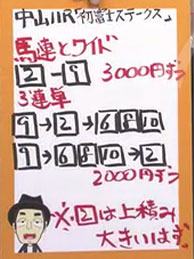 中山11R「初富士ステークス」
馬連とワイド
2-9 3000円ずつ
3連単
9→2→6 8 10
9→6 8 10→2
2000円ずつ
※2は上積み
大きいはず。